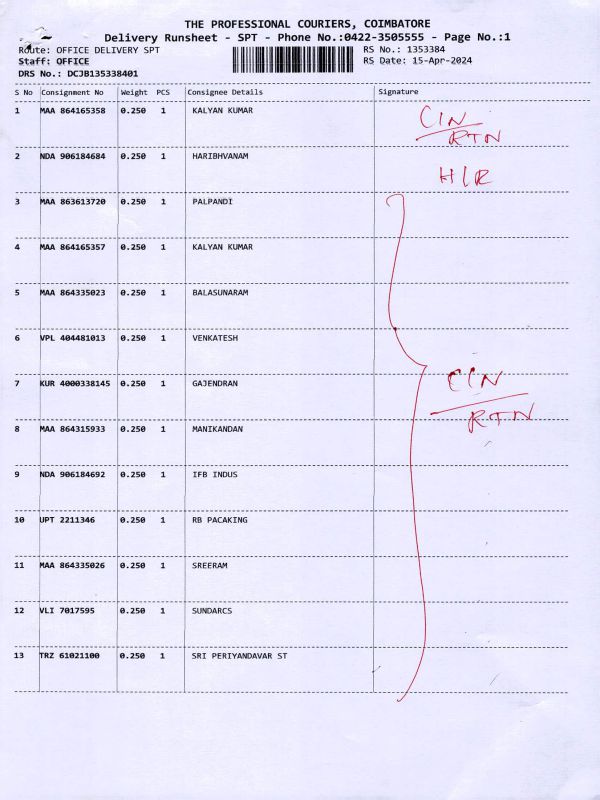 THE PROFESSIONAL COURIERS, COIMBATORE
Delivery Runsheet - SPT - Phone No.:0422-3505555 - Page No.:1
Route: OFFICE DELIVERY SPT RS No.: 1353384
Staff: OFFICE RS Date: 15-Apr-2024
DRS No.: DCJB135338401
S No Consignment No Weight PCS Consignee Details Signature
1 MAA 864165358 0.250 1 KALYAN KUMAR CIN
RTN
2 NDA 906184684 0.250 1 HARIBHVANAM
H/R
3 MAA 863613720 0.250 1 PALPANDI
4 MAA 864165357 0.250 1 KALYAN KUMAR
5 MAA 864335023 0.250 1 BALASUNARAM
6 VPL 404481013 0.250 1 VENKATESH
7 KUR 4000338145 0.250 1 GAJENDRAN CIN
RTN
8 MAA 864315933 0.250 1 MANIKANDAN
9 NDA 906184692 0.250 1 IFB INDUS
10 UPT 2211346 0.250 1 RB PACAKING
11 MAA 864335026 0.250 1 SREERAM
12 VLI 7017595 0.250 1 SUNDARCS
13 TRZ 61021100 0.250 1 SRI PERIYANDAVAR ST